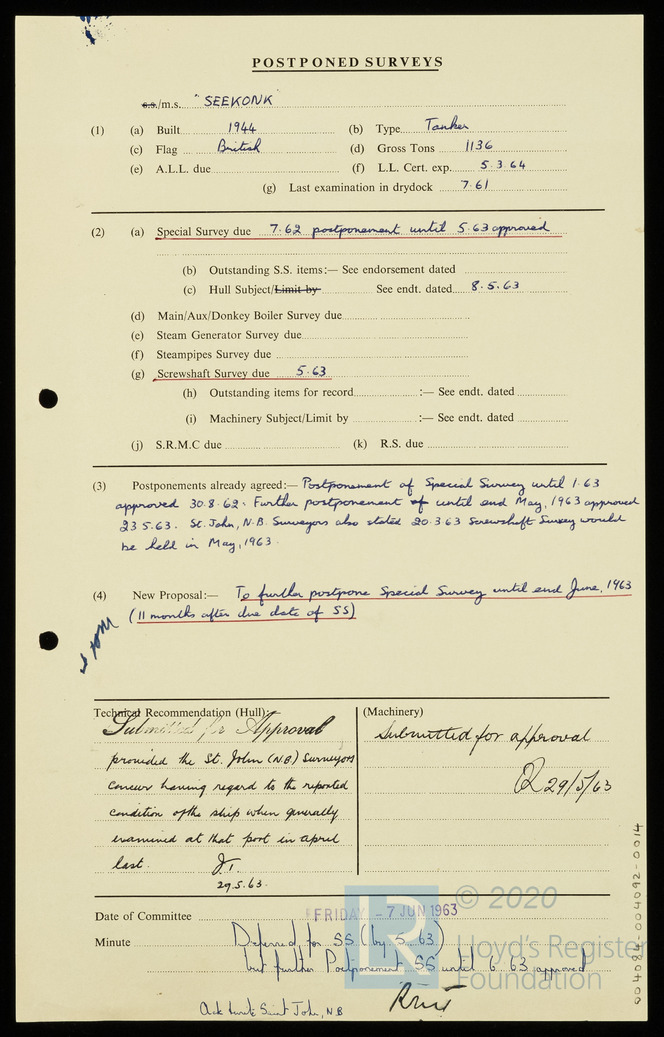 POSTPONED SURVEYS
s.s./m.s. "SEEKONK"
(1) (a) Built 1944 (b) Type Tanker
(c) Flag British (d) Gross Tons 1136
(e) A.L.L. due (f) L.L. Cert. exp. 5.3.64
(g) Last examination in drydock 7.61
(2) (a) Special Survey due 7.62 postponement until 5.63 approved
(b) Outstanding S.S. items:— See endorsement dated
(c) Hull Subject/Limit by See endt. dated 8.5.63
(d) Main/Aux/Donkey Boiler Survey due
(e) Steam Generator Survey due
(f) Steampipes Survey due
(g) Screwshaft Survey due 5.63
(h) Outstanding items for record :— See endt. dated
(i) Machinery Subject/Limit by :— See endt. dated
(j) S.R.M.C due (k) R.S. due
(3) Postponements already agreed:— Postponement of Special Survey until 1.63
approved 30.8.62. Further postponement of until end May, 1963 approved
23.5.63. St. John, N.B. Surveyors also stated 20.3.63 Screwshaft Survey would
be held in May, 1963.
(4) New Proposal:— To further postpone Special Survey until end June, 1963
(11 months after due date of SS)
Technical Recommendation (Hull):—
Submitted for Approval
provided the St. John (NB) Surveyors
concur having regard to the reported
condition of the ship when generally
examined at that port in april
last. J.T.
29.5.63.
(Machinery)
Submitted for approval
29/5/63
Date of Committee FRIDAY - 7 JUN 1963
Minute Deferred for SS (by 5.63)
but further Postponement SS until 6.63 approved
Saint John, N.B
© 2020
Lloyd's Register
Foundation
004084-004092-0014